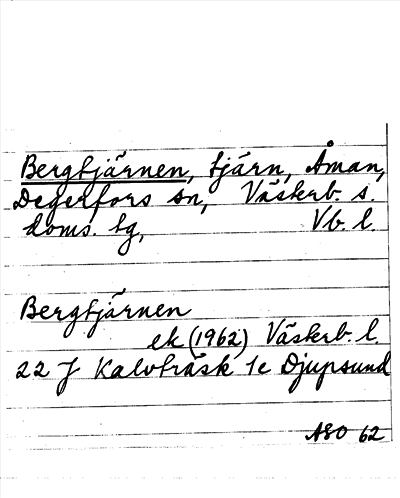 Bergtjärnen, tjärn, Åman,
Degerfors sn, Västerb. s.
doms. tg, Vb. l.
Bergtjärnen
ek (1962) Västerb. l.
22 J Kalvträsk 1c Djupsund
ASO 62